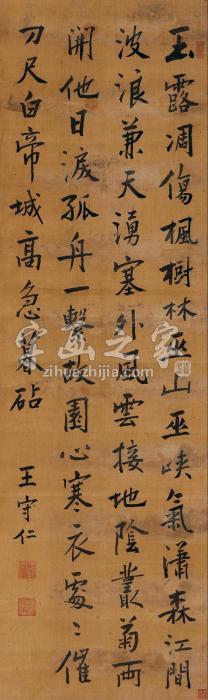 玉露凋傷楓樹林巫山巫峽氣瀟森江間
波浪兼天湧塞外風雲接地陰叢菊兩
開他日淚孤舟一繫故園心寒衣處〻催
刀尺白帝城高急暮砧
王守仁
字画之家
zihuazhijia.com